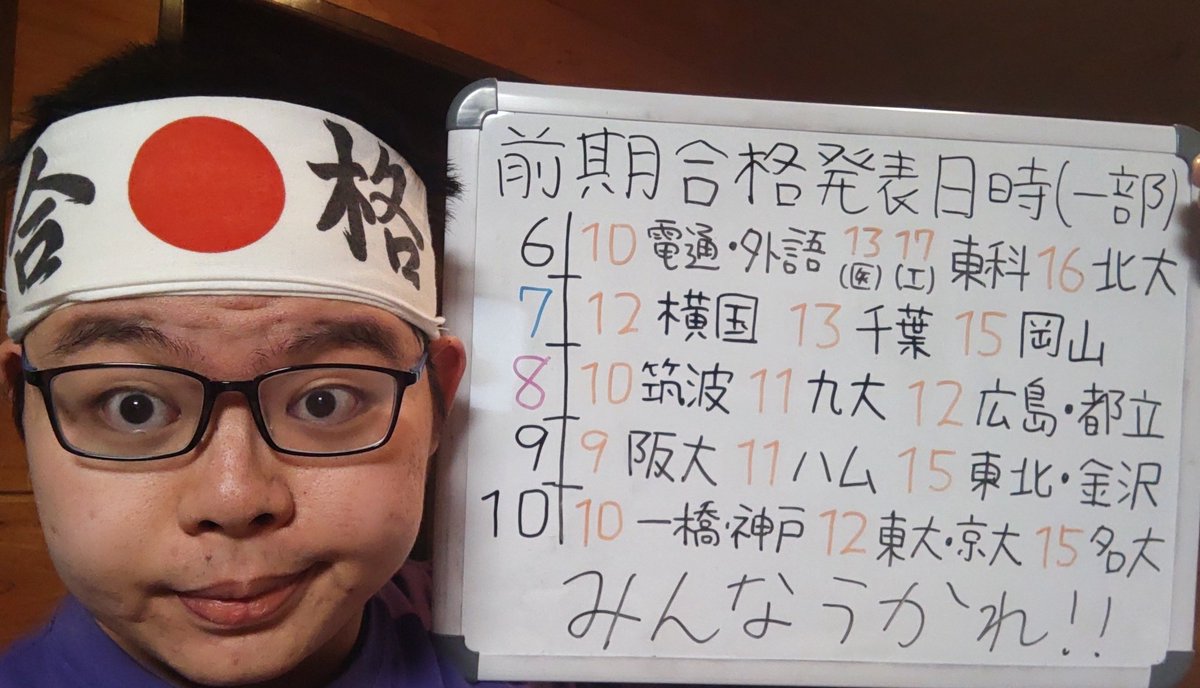 合格
前期合格発表日時(一部)
6 10 電通・外語 13(医) 17(工) 東科 16 北大
7 12 横国 13 千葉 15 岡山
8 10 筑波 11 九大 12 広島・都立
9 9 阪大 11 ハム 15 東北・金沢
10 10 一橋・神戸 12 東大・京大 15 名大
みんなうかれ!!